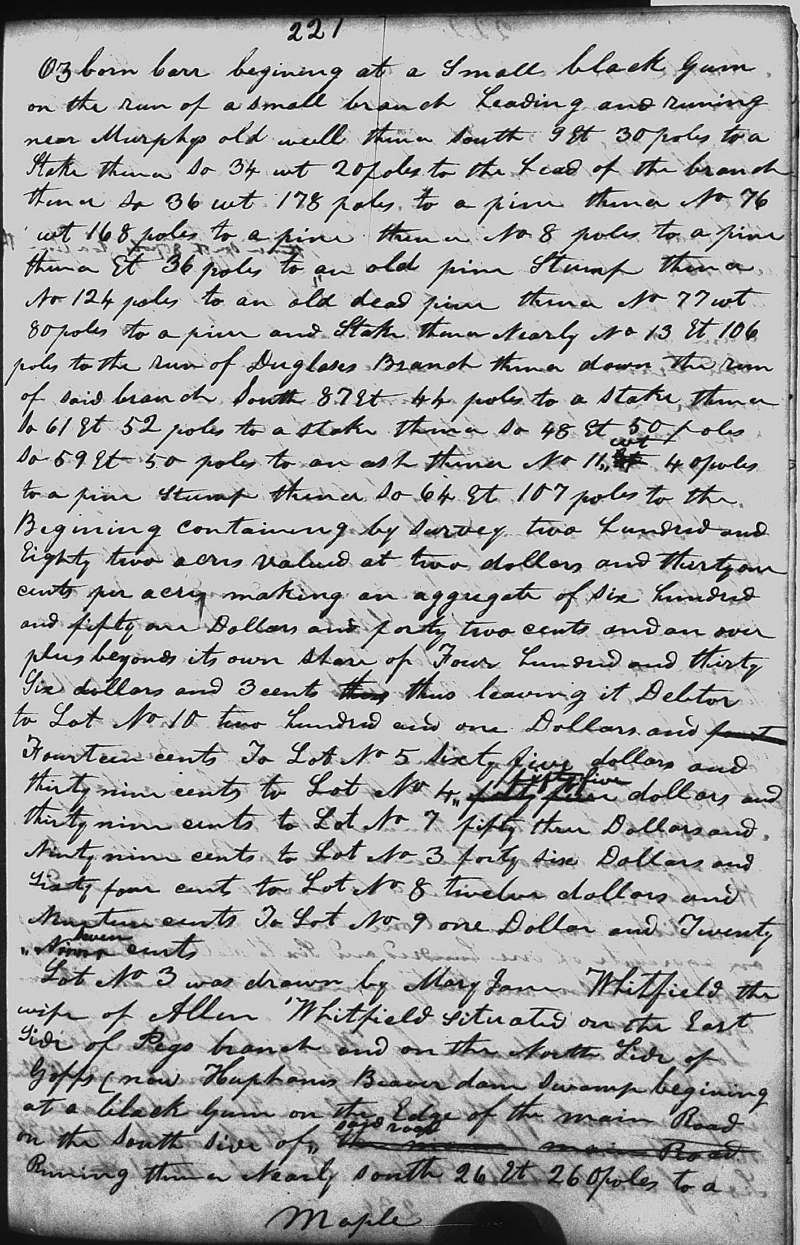 221
Ozborn barr begining at a Small black Gum
on the run of a small branch Leading and runing
near Murphys old well thence South 9 Et 30 poles to a
Stake thence So 34 wt 20 poles to the Lead of the branch
thence So 36 wt 178 poles to a pine thence No 76
wt 168 poles to a pine thence No 8 poles to a pine
thence Et 36 poles to an old pine Stump thence
No 124 poles to an old dead pine thence No 77 wt
80 poles to a pine and Stake thence Nearly No 13 Et 106
poles to the run of Duglases Branch thence down the run
of said branch South 87 Et 44 poles to a stake thence
So 61 Et 52 poles to a stake thence So 48 Et 50 poles
So 59 Et 50 poles to an ash thence No 11 wt 40 poles
to a pine Stump thence So 64 Et 107 poles to the
Begining containing by survey two hundred and
Eighty two acres valued at two dollars and thirty one
cents per acre making an aggregate of Six hundred
and fifty one Dollars and forty two cents and an over
plus beyond its own share of Four hundred and thirty
Six dollars and 3 cents thus leaving it Debtor
to Lot No 10 two hundred and one Dollars and
Fourteen cents To Lot No 5 Sixty five dollars and
thirty nine cents to Lot No 4 fifty five dollars and
thirty nine cents to Lot No 7 fifty three Dollars and
Ninty nine cents to Lot No 3 forty six Dollars and
Sixty four cent to Lot No 8 twelve dollars and
Nineteen cents To Lot No 9 one Dollar and Twenty
Seven cents
Lot No 3 was drawn by Mary Jane Whitfield the
wife of Allen Whitfield Situated on the East
Side of Pegs branch and on the North Side of
Goffs (now Huphams Beaver dam Swamp begining
at a black Gum on the Edge of the main Road
on the South Side of said road
Runing thence Nearly South 26 Et 260 poles to a
Maple